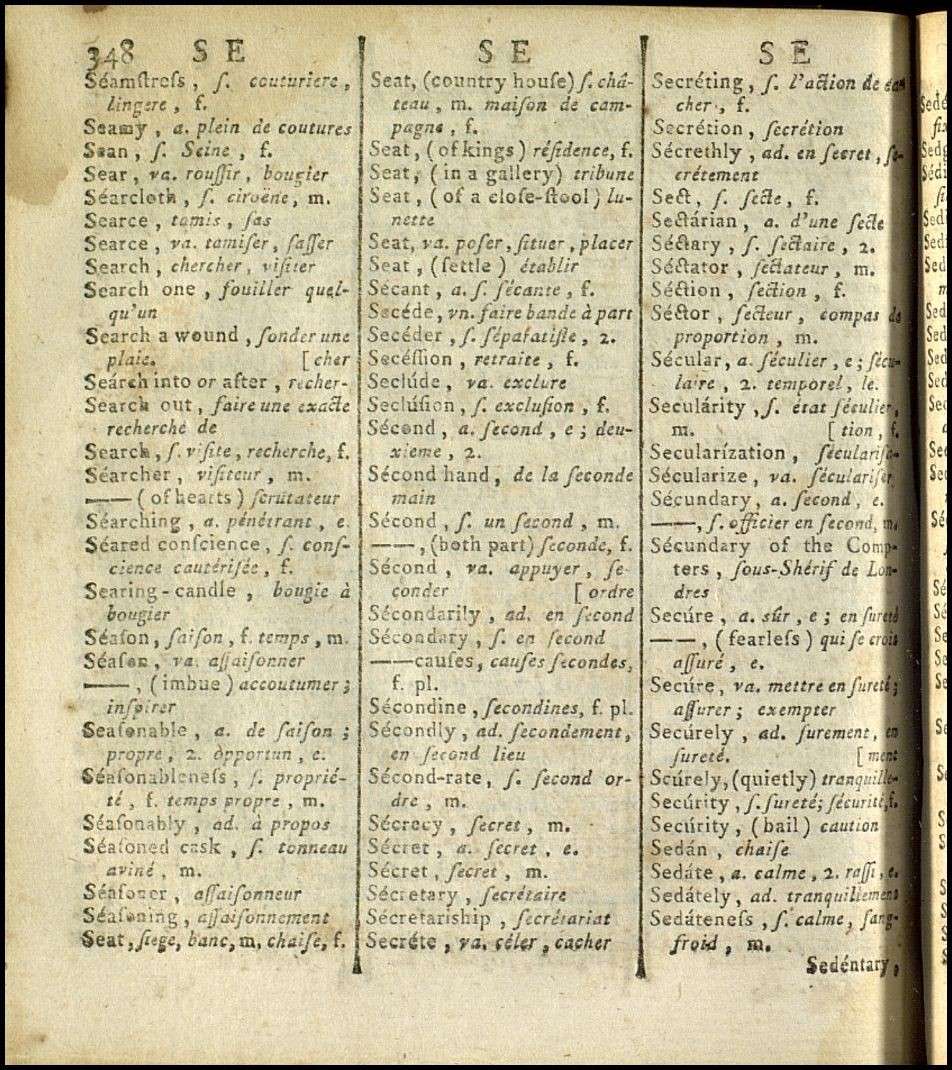 348 S E
Séamſtreſs, ſ. couturiere,
lingere, f.
Seamy, a. plein de coutures
Sean, ſ. Seine, f.
Sear, va. rouſſir, bougier
Séarcloth, ſ. ciroëne, m.
Searce, tamis, ſas
Searce, va. tamiſer, ſaſſer
Search, chercher, viſiter
Search one, fouiller quel-
qu'un
Search a wound, ſonder une
plaie. [cher
Search into or after, recher-
Search out, faire une exacte
recherche de
Search, ſ. viſite, recherche, f.
Séarcher, viſiteur, m.
—— (of hearts) ſcrutateur
Séarching, a. pénétrant, e.
Séared conſcience, ſ. conſ-
cience cautériſée, f.
Searing-candle, bougie à
bougier
Séaſon, ſaiſon, f. temps, m.
Séaſon, va. aſſaiſonner
——, (imbue) accoutumer;
inſpirer
Seaſonable, a. de ſaiſon;
propre, 2. opportun, e.
Séaſonableneſs, ſ. proprié-
té, f. temps propre, m.
Séaſonably, ad. à propos
Séaſoned cask, ſ. tonneau
aviné, m.
Séaſoner, aſſaiſonneur
Séaſoning, aſſaiſonnement
Seat, ſiege, banc, m. chaiſe, f.
S E
Seat, (country houſe) ſ. châ-
teau, m. maiſon de cam-
pagne, f.
Seat, (of kings) réſidence, f.
Seat, (in a gallery) tribune
Seat, (of a cloſe-ſtool) lu-
nette
Seat, va. poſer, ſituer, placer
Seat, (ſettle) établir
Sécant, a. ſ. ſécante, f.
Secéde, vn. faire bande à part
Secéder, ſ. ſéparatiſte, 2.
Secéſſion, retraite, f.
Seclúde, va. exclure
Secluſion, ſ. excluſion, f.
Sécond, a. ſecond, e; deu-
xieme, 2.
Sécond hand, de la ſeconde
main
Sécond, ſ. un ſecond, m.
——, (both part) ſeconde, f.
Sécond, va. appuyer, ſe-
conder [ordre
Sécondarily, ad. en ſecond
Sécondary, ſ. en ſecond
——cauſes, cauſes ſecondes,
f. pl.
Sécondine, ſecondines, f. pl.
Sécondly, ad. ſecondement,
en ſecond lieu
Sécond-rate, ſ. ſecond or-
dre, m.
Sécrecy, ſecret, m.
Sécret, a. ſecret, e.
Sécret, ſecret, m.
Sécretary, ſecrétaire
Sécretariship, ſecrétariat
Secréte, va. céler, cacher
S E
Secréting, ſ. l'action de
cher, f.
Secrétion, ſecrétion
Sécrethly, ad. en ſecret, ſe-
crétement
Sect, ſ. ſecte, f.
Sectárian, a. d'une ſecte
Séctary, ſ. ſectaire, 2.
Séctator, ſectateur, m.
Séction, ſection, f.
Séctor, ſecteur, compas de
proportion, m.
Sécular, a. ſéculier, e; ſécu-
laire, 2. temporel, le.
Seculárity, ſ. état ſéculier,
m. [tion, f.
Secularízation, ſéculariſa-
Sécularize, va. ſéculariſer
Sécundary, a. ſecond, e.
——, ſ. officier en ſecond, m.
Sécundary of the Comp-
ters, ſous-Shérif de Lon-
dres
Secúre, a. sûr, e; en ſureté
——, (fearleſs) qui ſe croit
aſſuré, e.
Secúre, va. mettre en ſureté;
aſſurer; exempter
Secúrely, ad. ſurement, en
ſureté. [ment
Scúrely, (quietly) tranquille-
Secúrity, ſ. ſureté; ſécurité, f.
Secúrity, (bail) caution
Sedán, chaiſe
Sedáte, a. calme, 2. raſſi, e.
Sedátely, ad. tranquillement
Sedáteneſs, ſ. calme, ſang-
froid, m.
Sedéntary,